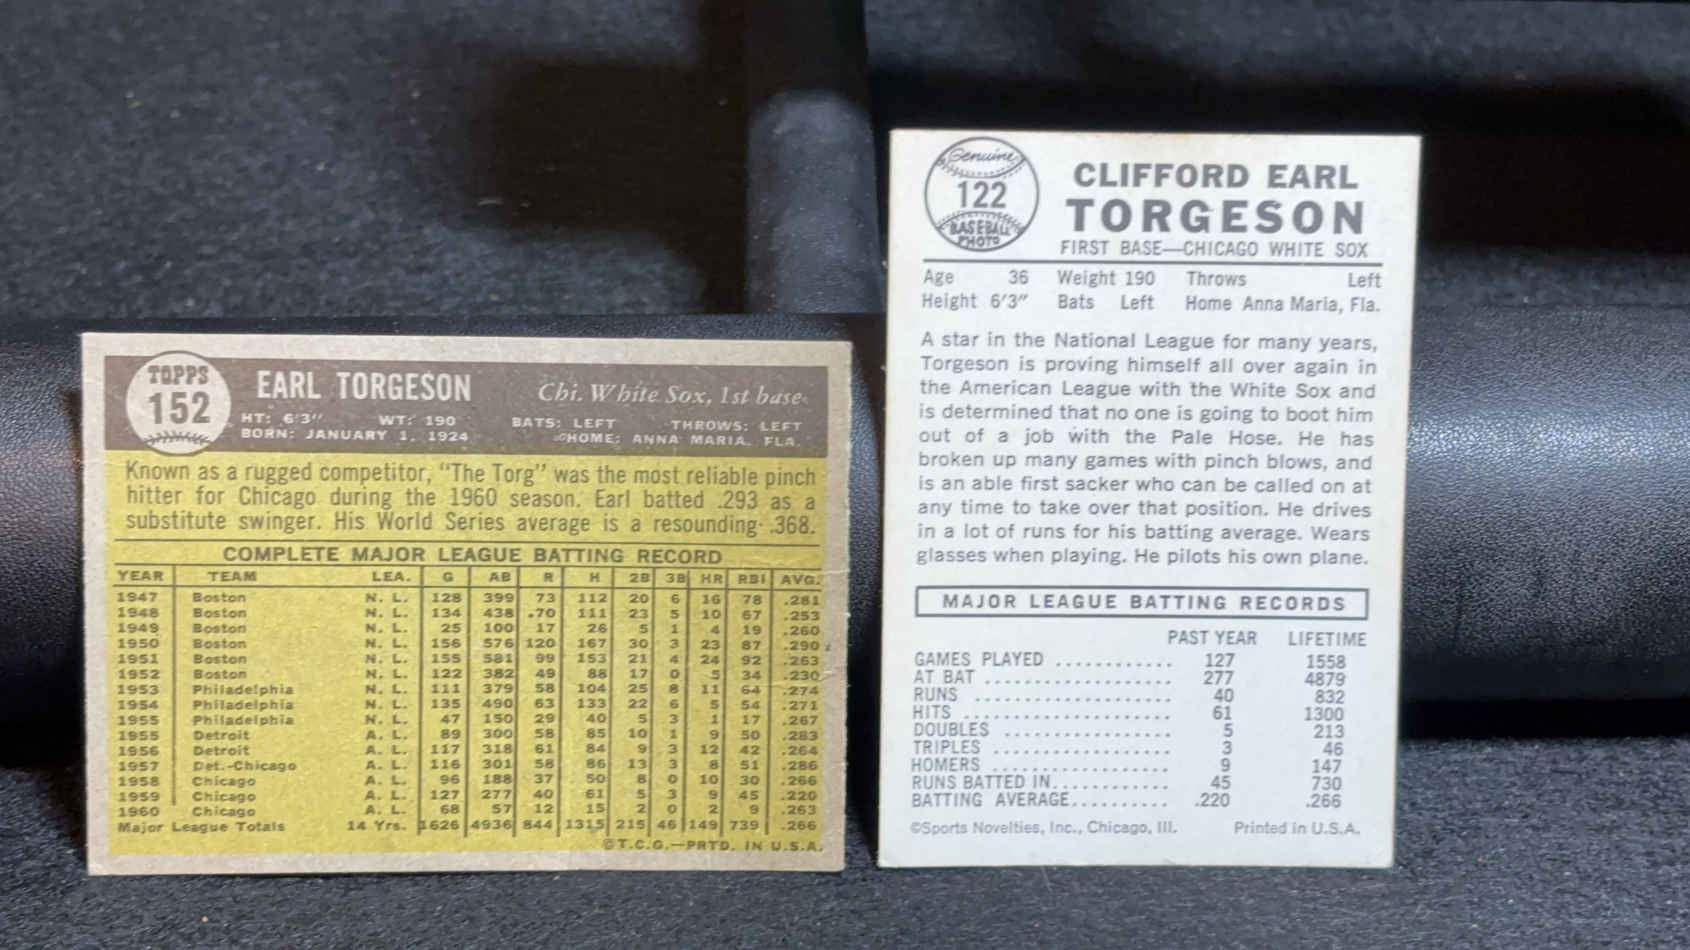 TOPPS
152
EARL TORGESON
Chi. White Sox, 1st base
HT: 6'3" WT: 190 BATS: LEFT THROWS: LEFT
BORN: JANUARY 1, 1924 HOME: ANNA MARIA, FLA.
Known as a rugged competitor, "The Torg" was the most reliable pinch
hitter for Chicago during the 1960 season. Earl batted .293 as a
substitute swinger. His World Series average is a resounding .368.
COMPLETE MAJOR LEAGUE BATTING RECORD
YEAR TEAM LEA. G AB R H 2B 3B HR RBI AVG.
1947 Boston N. L. 128 399 73 112 20 6 16 78 .281
1948 Boston N. L. 134 438 .70 111 23 5 10 67 .253
1949 Boston N. L. 25 100 17 26 5 1 4 19 .260
1950 Boston N. L. 156 576 120 167 30 3 23 87 .290
1951 Boston N. L. 155 581 99 153 21 4 24 92 .263
1952 Boston N. L. 122 382 49 88 17 0 5 34 .230
1953 Philadelphia N. L. 111 379 58 104 25 8 11 64 .274
1954 Philadelphia N. L. 135 490 63 133 22 6 5 54 .271
1955 Philadelphia N. L. 47 150 29 40 5 3 1 17 .267
1955 Detroit A. L. 89 300 58 85 10 1 9 50 .283
1956 Detroit A. L. 117 318 61 84 9 3 12 42 .264
1957 Det.-Chicago A. L. 116 301 58 86 13 3 8 51 .286
1958 Chicago A. L. 96 188 37 50 8 0 10 30 .266
1959 Chicago A. L. 127 277 40 61 5 3 9 45 .220
1960 Chicago A. L. 68 57 12 15 2 0 2 9 .263
Major League Totals 14 Yrs. 1626 4936 844 1315 215 46 149 739 .266
©T.C.G.—PRTD. IN U.S.A.
Genuine
122
BASEBALL
PHOTO
CLIFFORD EARL
TORGESON
FIRST BASE—CHICAGO WHITE SOX
Age 36 Weight 190 Throws Left
Height 6'3" Bats Left Home Anna Maria, Fla.
A star in the National League for many years,
Torgeson is proving himself all over again in
the American League with the White Sox and
is determined that no one is going to boot him
out of a job with the Pale Hose. He has
broken up many games with pinch blows, and
is an able first sacker who can be called on at
any time to take over that position. He drives
in a lot of runs for his batting average. Wears
glasses when playing. He pilots his own plane.
MAJOR LEAGUE BATTING RECORDS
PAST YEAR LIFETIME
GAMES PLAYED ............ 127 1558
AT BAT ................... 277 4879
RUNS .................... 40 832
HITS ..................... 61 1300
DOUBLES ................. 5 213
TRIPLES .................. 3 46
HOMERS .................. 9 147
RUNS BATTED IN............ 45 730
BATTING AVERAGE.......... .220 .266
©Sports Novelties, Inc., Chicago, Ill. Printed in U.S.A.